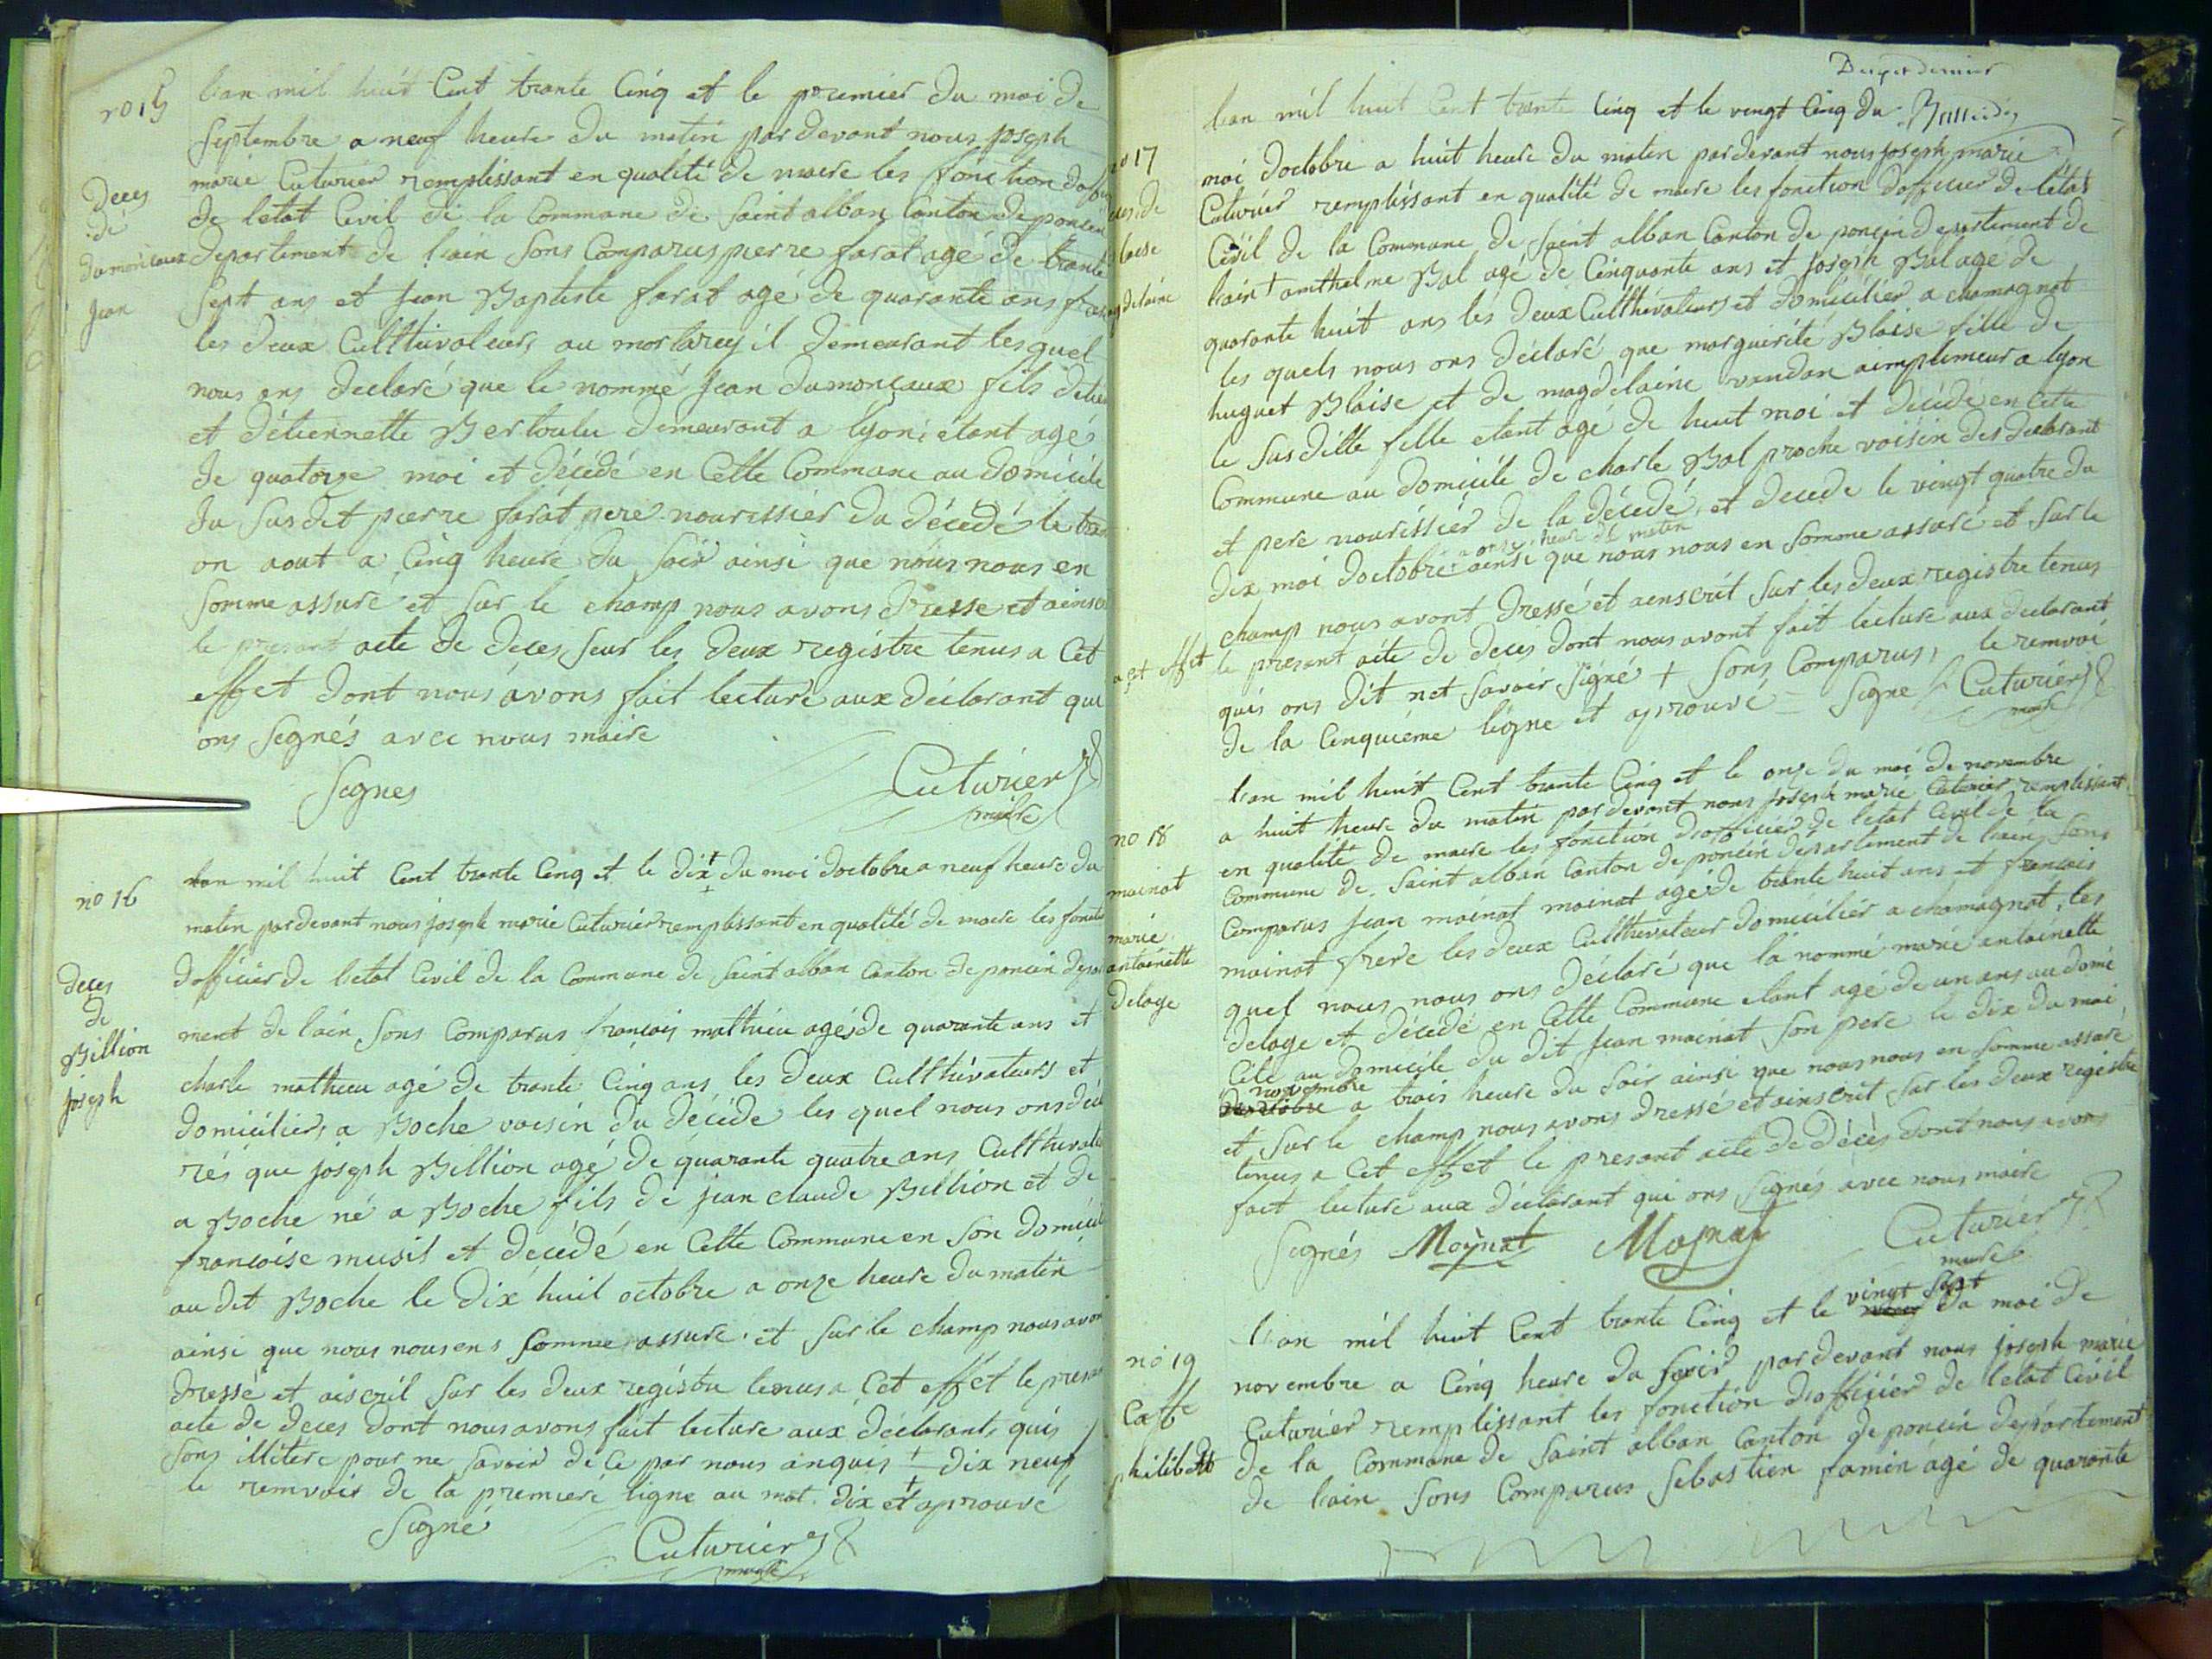 no 15
Deces
de
dumonceaux
jean
lan mil huit Cent trante Cinq et le premier du moi de
Septembre a neuf heure du matin par devant nous joseph
marie Cuturier remplissant en qualité de maire les fonction
de letat Civil de la Commune de Saint alban Canton de poncin
departement de lain Sons Comparus pierre farat agé de trante
Sept ans et jean Baptiste farat agé de quarante ans
les deux Culthivateurs au mortarey il demeurant les quel
nous ons declaré que le nommé jean dumonceaux fils
et détiennette Bertoulu demeurant a lyon étant agé
de quatorze moi et décédé en Cette Commune au domicile
du Susdit pierre farat pere nourissier du décedé le
on aout a Cinq heure du Soir ainsi que nous nous en
Somme assuré et Sur le champ nous avons dresse et
le presant acte de deces Sur les deux registre tenus a Cet
effet dont nous avons fait lecture aux déclarant qui
ons Segnés avec nous maire
Segnes Cuturier
maire
no 16
deces
de
Billion
joseph
lan mil huit Cent trante Cinq et le dix + du moi doctobre a neuf heure du
matin par devant nous joseph marie Cuturier remplissant en qualité de maire les
dofficier de letat Civil de la Commune de Saint alban Canton de poncin
ment de lain Sons Comparus francois mathieu agé de quarante ans et
charle mathieu agé de trante Cinq ans les deux Culthivateurs et
domicilier a Boche voisin du décédé les quel nous ons
rés que joseph Billion agé de quarante quatre ans
a Boche né a Boche fils de jean claude Billion et de
francoise musit et décédé en Cette Commune en Son
au dit Boche le dix huit octobre a onze heure du matin
ainsi que nous nous ens Somme assuré et Sur le champ nous
dressé et aiscrit Sur les deux registre tenus a Cet effet le
acte de deces dont nous avons fait lecture aux déclarants quis
Sons illétere pour ne Savoir de Ce par nous anquis + dix neuf
le remvois de la premiere ligne au mot dix et aprouvé
Signé
Cuturier
maire
lan mil huit Cent trante Cinq et le vingt Cinq du
no 17
moi doctobre a huit heure du matin par devant nous joseph marie
Cuturier remplissant en qualité de maire les fonction dofficier de létat
Civil de la Commune de Saint alban Canton de poncin departement de
lain + anthelme Bal agé de Cinquante ans et joseph Bal agé de
quarante huit ans les deux Culthivateurs et domicilier a chamagnat
les quels nous ons declaré que marguirite Blaise fille de
huguet Blaise et de magdelaine a lyon
le Sus ditte fille etant agé de huit moi et décédé en Cette
Commune au domicile de charle Bal proche voisin des declarant
et pere nourissier de la décedé, et decede le vingt quatre du
a onze heure du matin
dix moi doctobre ainsi que nous nous en Somme assuré et Sur le
champ nous avont dressé et ainscrit Sur les deux registre tenus
a cet effet le presant acte de deces dont nous avont fait lecture aux declarant
quis ons dit net Savoir Signé + Sons Comparus, le remvoi
de la Cinquieme ligne et aprouvé Signe Cuturier
maire
no 18
mainat
marie
antoinette
delage
lan mil huit Cent trante Cinq et le onze du moi de novembre
a huit heure du matin par devant nous joseph marie Cuturier remplissant
en qualité de maire les fonction dofficier de létat Civil de la
Commune de Saint alban Canton de poncin departement de lain Sons
Comparus jean mainat mainat agé de trante huit ans et francois
mainat frere les deux Culthivateur domicilier a chamagnat, les
quel nous nous ons déclaré que la nommé marie antoinette
delage et décédé en Cette Commune etant agé de un ans au domi
Cile au domicile du dit jean mainat Son pere le dix du moi
novembre
a trois heure du Soir ainsi que nous nous en Somme assuré
et Sur le champ nous avons dressé et ainscrit Sur les deux registre
tenus a Cet effet le presant acte de décès dont nous avons
fait lecture aux déclarant qui ons Signés avec nous maire
Segnés Moynat Moynat Cuturier
maire
no 19
philibert
vingt Sept
lan mil huit Cent trante Cinq et le du moi de
novembre a Cinq heure du Soir par devant nous joseph marie
Cuturier remplissant les fonction dofficier de létat Civil
de la Commune de Saint alban Canton de poncin departement
de lain Sons Comparus Sebastien famin agé de quarante